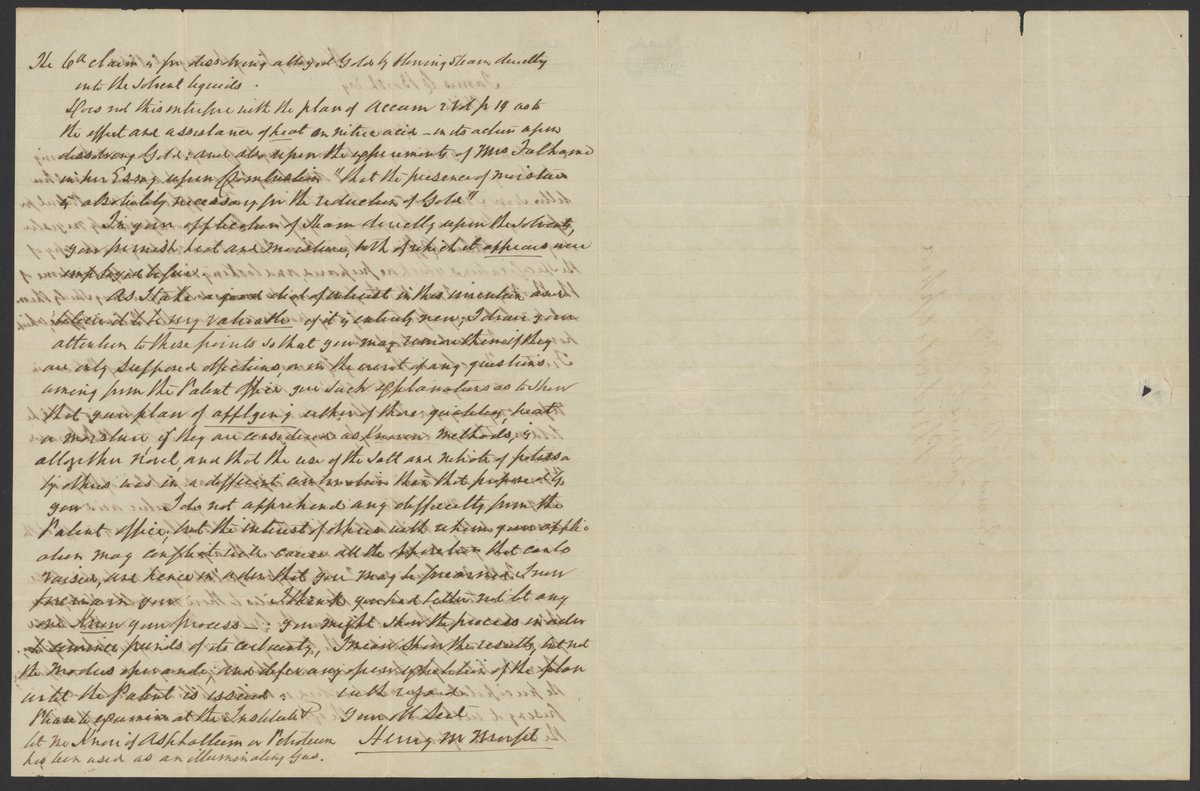 The 6th claim is for dissolving alloyed Gold by throwing Steam directly
into the solvent liquids.
Does not this interfere with the plan of Accum 2 Vol p 19 as to
the effect and assistance of heat on nitric acid – in its action upon
dissolving Gold: and also upon the experiments of Mrs Fulhame
in her Essay upon Combustion "that the presence of moisture
is absolutely necessary for the reduction of Gold"
In your application of Steam directly upon the solvents,
you furnish heat and moisture, both of which it appears were
employed before.
As I take a good deal of interest in this invention and
believe it to be very valuable if it is entirely new, I draw your
attention to these points so that you may remove them if they
are only supposed objections or in the event of any questions
arising from the Patent office give such explanations as to shew
that your plan of applying either of these qualities, heat
or moisture if they are considered as known methods, is
altogether novel, and that the use of the Salt and nitrate of potassa
by others was in a different than that proposed by
you I do not apprehend any difficulty from the
Patent office, but the interest of others with whom your applic-
ation may conflict will cause all the opposition that can be
raised, and hence in order that you may be forearmed I now
forewarn you I think you had better not let any
one know your process: you might show the process in order
to convince friends of its certainty, I mean show the results, but not
the modus operandi, and defer any open exhibition of the plan
until the Patent is issued. with regard
Please to examine at the Institute & Your Ob Sert
let me know if Asphaltum or Petroleum Henry M
has been used as an illuminating Gas.